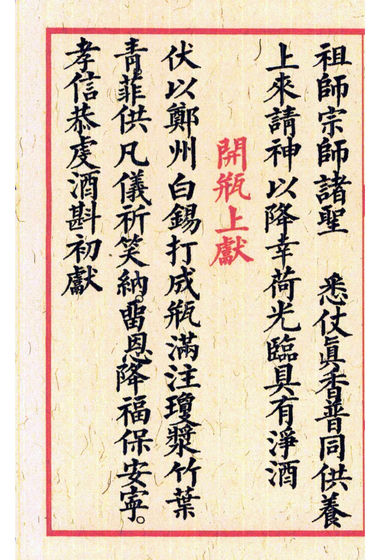 祖師宗師諸聖　悉仗眞香普同供養
上來請神以降幸荷光臨具有淨酒
開瓶上獻
伏以鄭州白錫打成瓶滿注瓊漿竹葉
青菲供凡儀祈笑納畱恩降福保安寧。
孝信恭虔酒斟初獻